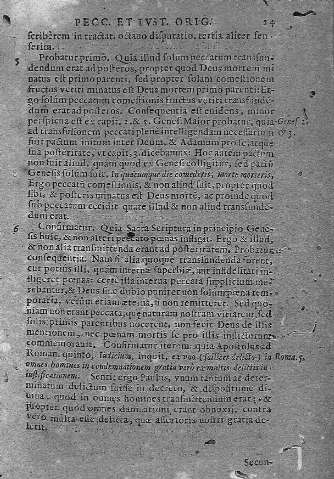 PECC. ET IVST. ORIG. 24
scriberem in tractat. octauo disputatio. tertia aliter sen-
serim.
5 Probatur primo. Quia illud solum peccatum transfun-
dendum erat ad posteros, propter quod Deus mortem mi
natus est primo parenti, sed propter solam comestionem
fructus vetiti minatus est Deus mortem primo parenti: Er
go solum peccatum comestionis fructus vetiti transfundē-
dum erat ad posteros. Consequentia est euidens, minor
perspicua est ex capit. 2. & 3. Genes. Maior probatur, quia Genes. 2.
ad transfusionem peccati plene intelligendam necessarium & 3.
fuit pactum initum inter Deum, & Adamum pro se, atque
sua posteritate, vt capit. 3. dicebamus: Hoc autem pactum
non fuit aliud, quam quod ex Genesi colligitur, sed ex
Genesi solum fuit. In quacumque die comederis, morte morieris,
Ergo peccatum comestionis, & non aliud fuit, propter quod
sibi, & posteris minatus est Deus mortem, ac proinde quod
sub peccatum cecidit quare illud & non aliud transfunden-
dum erat.
6 Confirmatur. Quia Sacra Scriptura in principio Gene-
sis huic, & non alteri peccato pœnas infligit. Ergo & illud,
& non alia transfundenda erant ad posteritatem. Probatur
consequentia. Nam si alia quoque transfundenda forent,
cur potius illi, quam internæ superbiæ, aut infidelitati in-
fligeret pœnas:
& Deus sine dubio punierat non solum pœna tem-
poraria, verum etiam æterna, si non remitteret. Sed quo-
niam non erant peccata, quæ naturam nostram vitiarent, sed
solis primis parentibus nocerent, non fecit Deus de illis
mentionem, nec pœnam mortis se pro illis inflicturum
commemorauit. Confirmatur iterum quia Apostolus ad
Roman. quinto, Iudicium, inquit, ex vno Roma. 5.
omnes homines in condemnationem gratia vero ex multis delictis in
iustificationem. Sentit ergo Paulus, vnum tantum ac deter-
minatum delictum fuisse in decreto, & dispositione di-
uina, quod in omnes homines transfundendum erat: &
propter quod omnes damnationi erant obnoxij, contra
vero multa esse delicta, quæ abstersit nostri gratia de-
lerit.
Secun-